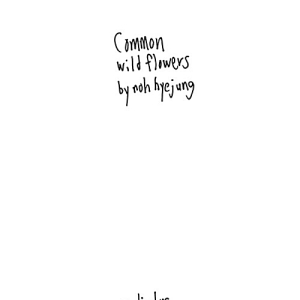 Common
wild flowers
by noh hyejung